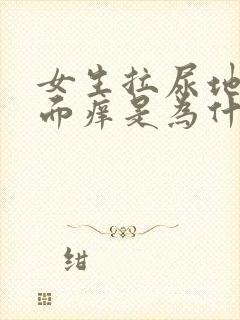 女生拉尿地
而痒是为什
绀